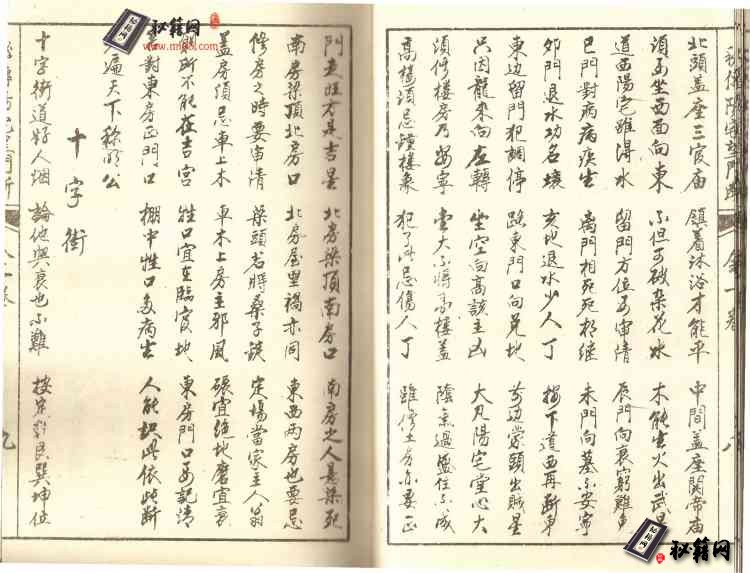 北頭盖座三官庙 鎮着沐浴才能平 中間盖座関帝庙
須要坐西面向東 不但可破桑花水 木能生火出武
道西陽宅雖得水 留門方位要审清 辰門向衰窮難
巳門對病病疾生 丙門相死死相继 未門向墓不安寧
卯門退水功名壞 亥地退水少人丁 按下道西再断東
東边留門犯調停 路東門口向兑地 前边蒙頭出賊星
只因龍來向左轉 坐空向高該主凶 大凡陽宅堂心大
須修楼房乃安寧 堂大不将高楼盖 陰氣過盛住不成
高楼須忌鐘樓象 犯了此忌傷人丁 雖修土房亦要正
金一卷
八
門走旺方是吉星 北房梁頂南房口 南房之人悬梁死
南房梁頂北房口 北房屋里禍亦同 東西两房也要忌
修房之時要审清 梁頭若將桑子銃 定場當家主人翁
盖房須忌車上木 車木上房主邪風 碾宜绝地磨宜衰
厠所不能在吉宫 牲口宜在臨官地 東房門口要記清
對東房正門口 棚中牲口多病生 人能訳此依此断
遍天下称明公
十字街
十字街道好人烟 論他興衰也不難 按定乾艮巽坤位
一卷
九
秘籍网
www.mij8.com
秘籍网